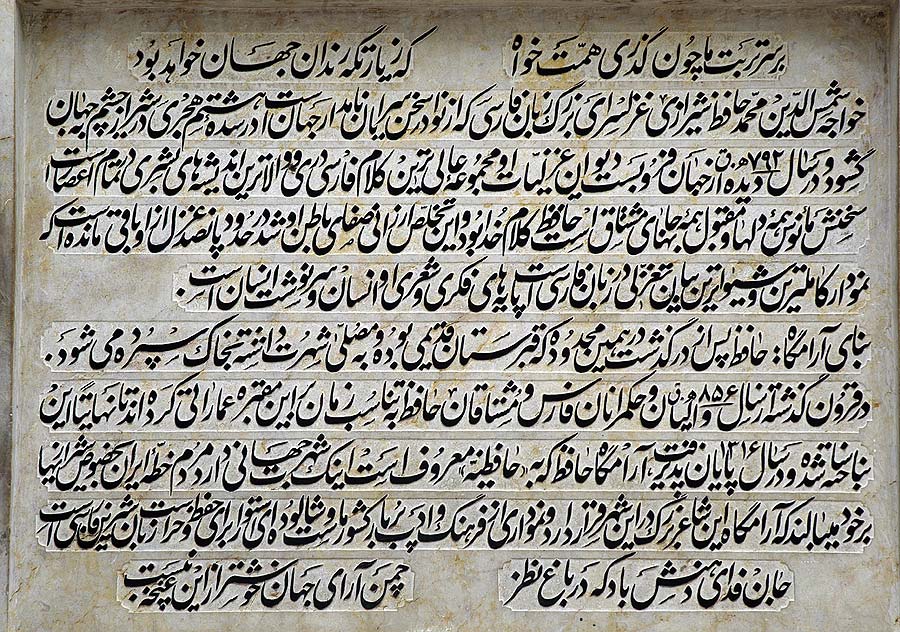 بر سر تربت ما چون گذری همت خواه که زیارتگه رندان جهان خواهد بود
خواجه شمس‌الدین محمد حافظ شیرازی غزلسرای بزرگ زبان فارسی که از نوادر سخن سرایان نامدار جهان است در سده هشتم هجری در شیراز چشم به جهان
گشود و در سال ۷۹۲ ه.ق دیده از جهان فرو بست دیوان غزلیات او مجموعه عالی ترین کلام فارسی دری و والاترین اندیشه های بشری در تمام اعصار است
سخنش مأنوس همه دلها و مقبول همه جانهای مشتاق است حافظ کلام خدا بود و این تخلص ارزانی صفای باطن او شد در حدود پانصد غزل از او باقی مانده است که
نمودار کاملترین و شیواترین بیان تغزلی در زبان فارسی است پایه های فکری و شعری او انسان و سرنوشت انسان است.
بنای آرامگاه: حافظ پس از درگذشت در همین محدوده که قبرستان قدیمی بوده و به مصلی شهرت داشته بخاک سپرده می شود.
در قرون گذشته از سال ۸۵۶ ق والیان و حکمرانان فارس و مشتاقان حافظ به تناسب زمان بر این مقبره عماراتی کرده اند تا نهایتاً این
بنا ساخته شد و در سال ۱۳۱۶ پایان پذیرفت، آرامگاه حافظ که به حافظیه معروف است اینک شهرت جهانی دارد مردم خطه ایران بخصوص شیرازیها
بر خود میبالند که آرامگاه این شاعر بزرگ در این شهر قرار دارد و نموداری از فرهنگ و ادب پربار کشور ماست و شالوده ای استوار برای حفظ و حراست زبان شیرین فارسی است
جان فدای دهنش باد که در باغ نظر چمن آرای جهان خوشتر از این غنچه نبست